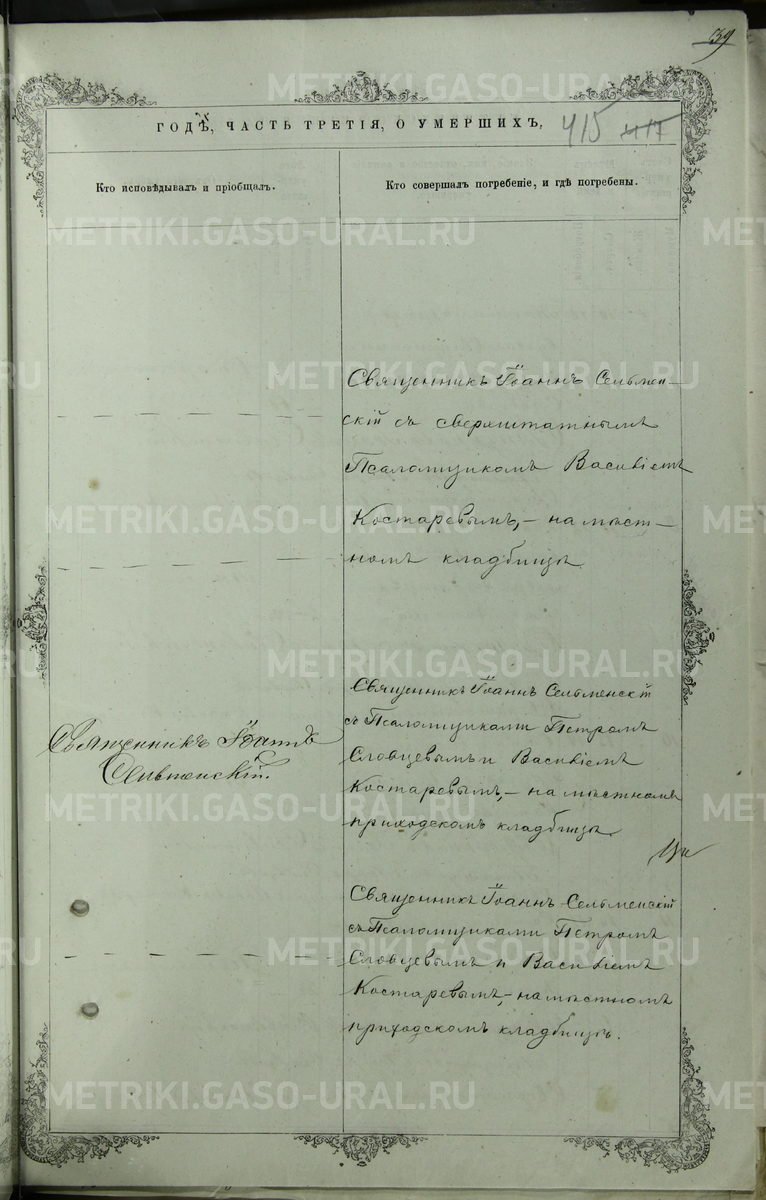 39
ГОДѢ, ЧАСТЬ ТРЕТІЯ, О УМЕРШИХЪ, 415 417
Кто исповѣдывалъ и пріобщалъ.
Кто совершалъ погребеніе, и гдѣ погребены.
Священникъ Іоаннъ Сельмен-
скій съ сверхштатнымъ
Псаломщикомъ Василіемъ
Костаревымъ, - на мѣст-
номъ кладбищѣ
Священникъ Іоаннъ
Сельменскій.
Священникъ Іоаннъ Сельменскій
съ Псаломщиками Петромъ
Словцевымъ и Василіемъ
Костаревымъ, - на мѣстномъ
приходскомъ кладбищѣ
Священникъ Іоаннъ Сельменскій
съ Псаломщиками Петромъ
Словцевымъ и Василіемъ
Костаревымъ, - на мѣстномъ
приходскомъ кладбищѣ.
METRIKI.GASO-URAL.RU